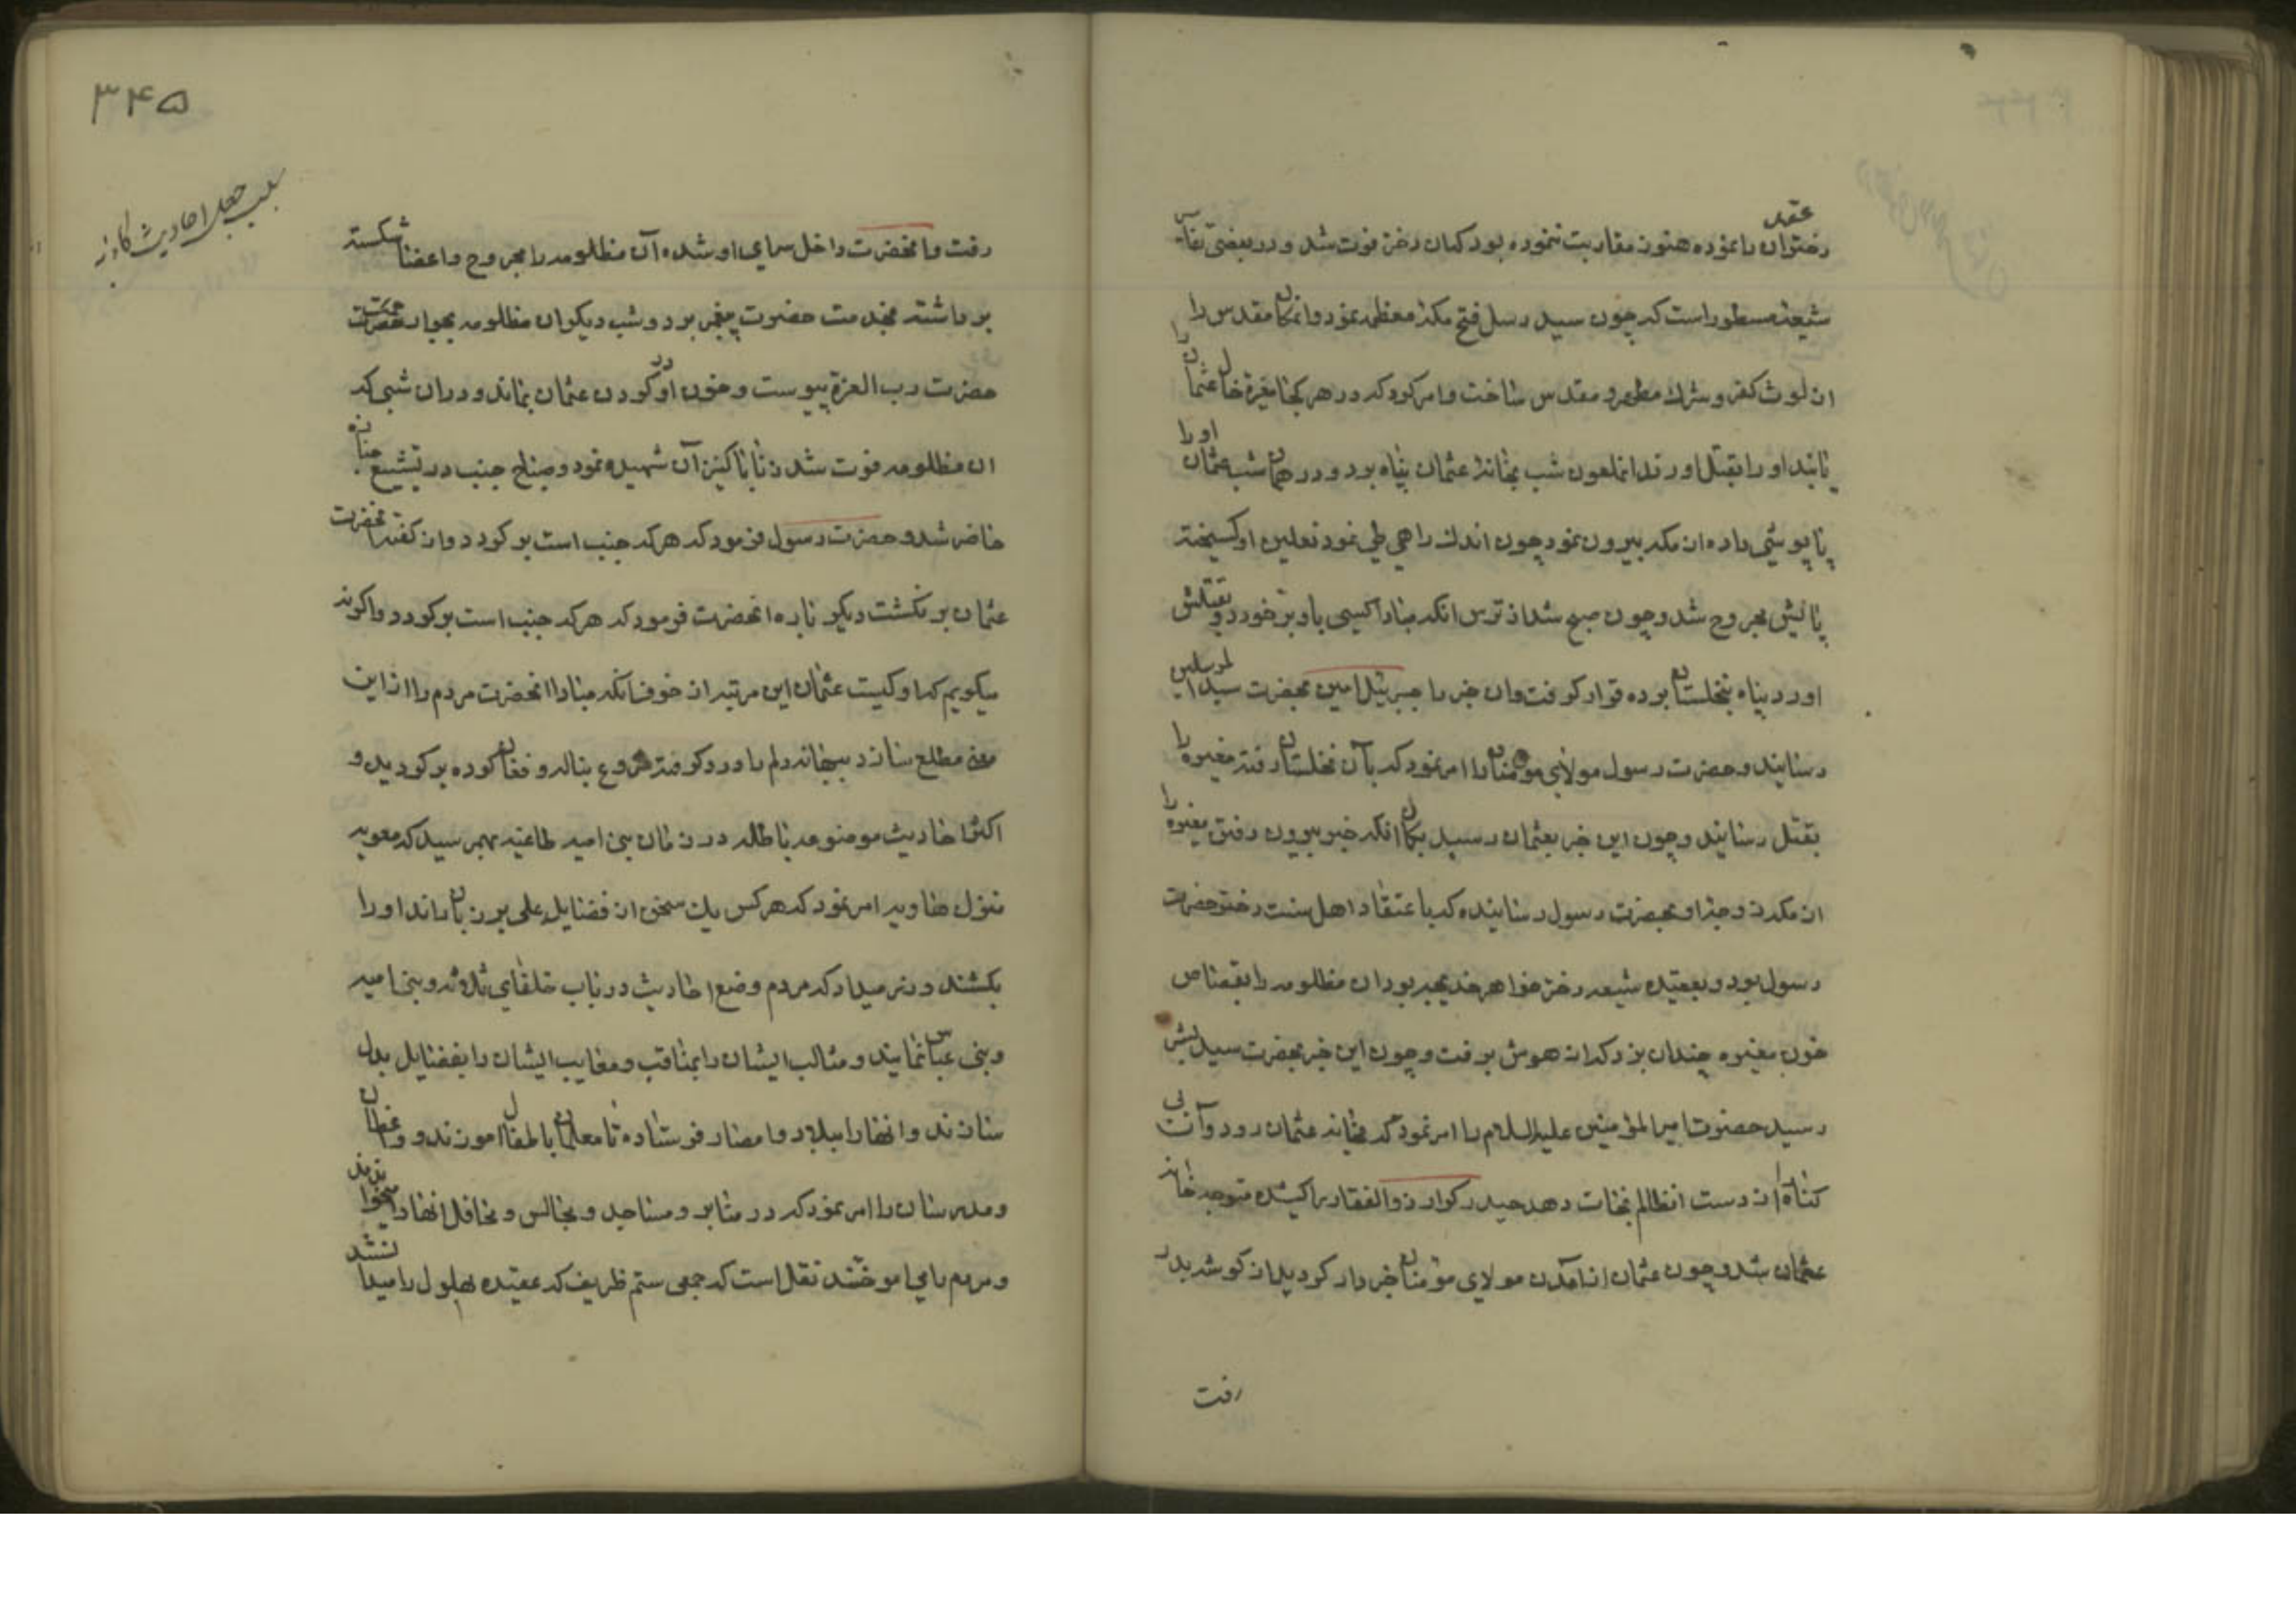 دختران را عقد نموده هنوز مقاربت ننموده بود کمان دختر فوت شد و در بعضی تفاسیر
شیعه مسطور است که چون سید رسل فتح مکه معظمه نمود و انمکان مقدس را
از لوث کفر و شرک مطهر و مقدس ساخت و امر کرد که در هر کجا مغیره خال عثمان را
یابند او را بقتل اورند انملعون شب بخانه عثمان پناه برد و در همان شب عثمان او را
پاپوشی داده از مکه بیرون نمود چون اندک راهی طی نمود نعلین او کسیخته
پایش مجروح شد و چون صبح شد از ترس انکه مبادا کسی باو برخورد و بقتلش
اورد پناه بنخلستان برده قرار کرفت و ان خبر را جبرئیل امین بحضرت سید المرسلین
رسانید و حضرت رسول مولای مومنان را امر نمود که بآن نخلستان رفته مغیره را
بقتل رسانید و چون این خبر بعثمان رسید بکمان انکه خبر بیرون رفتن مغیره را
از مکه زوجه او بحضرت رسول رسانیده که باعتقاد اهل سنت دختر حضرت
رسول بود و بعقیده شیعه دختر خواهر خدیجه بود ان مظلومه را بقصاص
خون مغیره چندان بزد که از هوش برفت و چون این خبر بحضرت سید بشر
رسید حضرت امیر المؤمنین علیه السلام را امر نمود که بخانه عثمان رود و آن بی
کناه را از دست انظالم نجات دهد حیدر کرار ذوالفقار را کشیده متوجه خانه
عثمان شد و چون عثمان از امدن مولای مؤمنان خبردار کردید از کوشه بدر
رفت
۳۴۵
سبب جعل احادیث کاذبه
رفت و انحضرت داخل سرای او شده آن مظلومه را مجروح و اعضا شکسته
برداشته بخدمت حضرت پیغمبر برد و شب دیکر ان مظلومه بجوار رحمت
حضرت رب العزة پیوست و خون او در کردن عثمان بماند و در ان شبی که
ان مظلومه فوت شد زنا با کنیز آن شهیده نمود و صباح جنب در تشییع جنازه
حاضر شد و حضرت رسول فرمود که هر که جنب است برکردد و از کفته انحضرت
عثمان برنکشت دیکر باره انحضرت فرمود که هر که جنب است برکردد و اکرنه
میکویم که او کیست عثمان این مرتبه از خوف انکه مبادا انحضرت مردم را از این
معنی مطلع سازد بیبهانه دلم را درد کرفته شروع بناله و فغان کرده برکردید و
اکثر احادیث موضوعه باطله در زمان بنی امیه طاغیه بهم رسید که معویه
بکشند و زر میداد که مردم وضع احادیث در باب خلفای ثلاثه و بنی امیه
و بنی عباس نمایند و مثالب ایشان را بمناقب و معایب ایشان را بفضایل بدل
سازند و انها را ببلاد و امصار فرستاده تا معلمان باطفال اموزند و واعظان
و مدرسان را امر نمود که در منابر و مساجد و مجالس و محافل انها را میخواندند
و مردم یاد می اموختند نقل است که جمعی ستم ظریف که عقیده بهلول را میدا